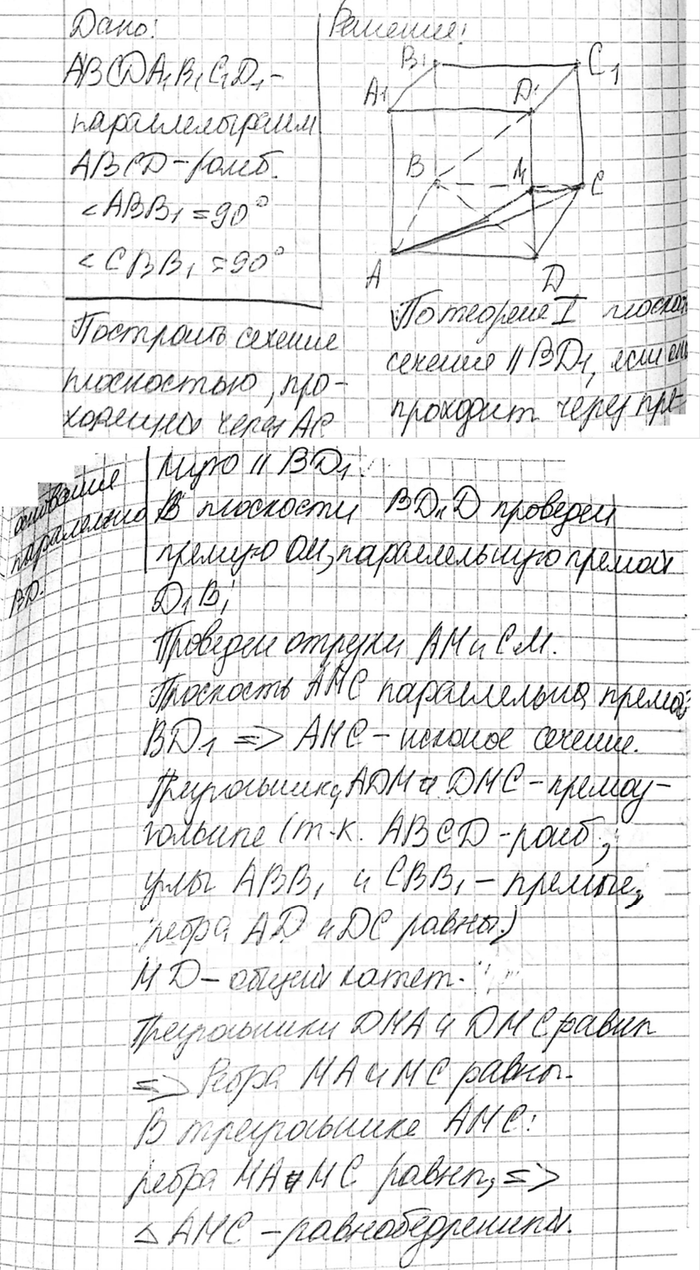 Дано:
ABCDA₁B₁C₁D₁-
параллелограмм
ABCD-ромб.
<ABB₁=90°
<CBB₁=90°
Построить сечение
плоскостью, про-
ходящую через AC
основания
параллельно
BD.
Решение:
B₁
C₁
A₁
D₁
B
M
C
A
D
По теореме I
сечение || BD₁, если
проходит через пря-
мую || BD₁.
В плоскости BD₁D проведём
прямую OM, параллельную прямой
D₁B,
Проведём отрезки AM и CM.
Плоскость AMC параллельна прямой
BD₁ => AMC - искомое сечение.
Треугольники ADM и DMC - прямоу-
гольные (т.к. ABCD - ромб,
углы ABB₁ и CBB₁ - прямые,
ребра AD и DC равны)
MD - общий катет.
Треугольники DMA и DMC равны
=> Ребра MA и MC равны.
В треугольнике AMC:
ребра MA и MC равны, =>
△AMC - равнобедренный.